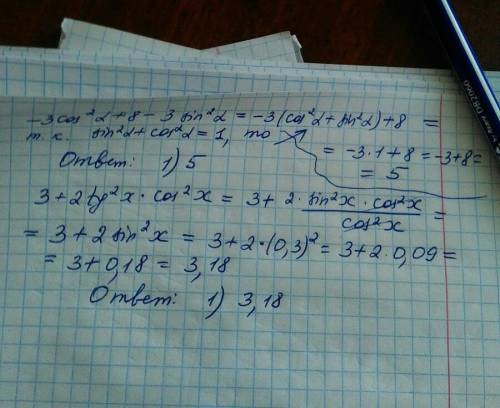 -3cos²α+8-3sin²α = -3(cos²α+sin²α)+8 =
т.к. sin²α+cos²α=1, то
= -3·1+8 = -3+8=
= 5
Ответ: 1) 5
3+2tg²x·cos²x = 3+ 2·sin²x·cos²x/cos²x =
= 3+2sin²x = 3+2·(0,3)² = 3+2·0,09=
= 3+0,18 = 3,18
Ответ: 1) 3,18